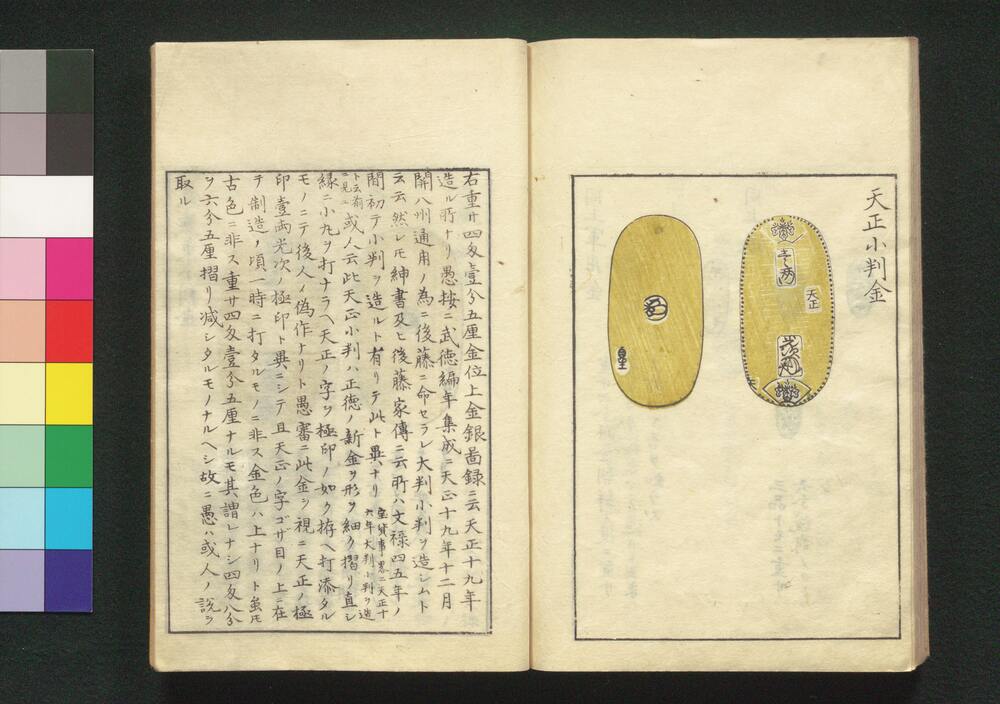 天正小判金
壹両
天正
光次
皇
右重サ四匁壹分五厘金位上金銀圖録ニ云天正十九年
造ル所ナリ愚按ニ武徳編年集成ニ天正十九年十二月
関八州通用ノ為ニ後藤ニ命セラレ大判小判ヲ造シムト
云云然レ𪜈紳書及ヒ後藤家傳ニ云所ハ文禄四五年ノ
間初テ小判ヲ造ルト有リテ此ト異ナリ宝貨事畧ニ天正十
六年大判小判ヲ造
ト云有
ニ見ユ或人云此天正小判ハ正徳ノ新金ヲ形ヲ細ク摺リ直シ
縁ニ小九ヲ打ナラヘ天正ノ字ヲ極印ノ如ク拵ヘ打添タル
モノニテ後人ノ偽作ナリト愚審ニ此金ヲ視ニ天正ノ極
印壹両光次ノ極印ト異ニシテ且天正ノ字ゴザ目ノ上ニ在
テ制造ノ頃一時ニ打タルモノニ非ス金色ハ上ナリト虽𪜈
古色ニ非ス重サ四匁壹分五厘ナルモ其謂レナシ四匁八分
ヲ六分五厘摺リ减シタルモノナルヘシ故ニ愚ハ或人ノ説ヲ
取ル